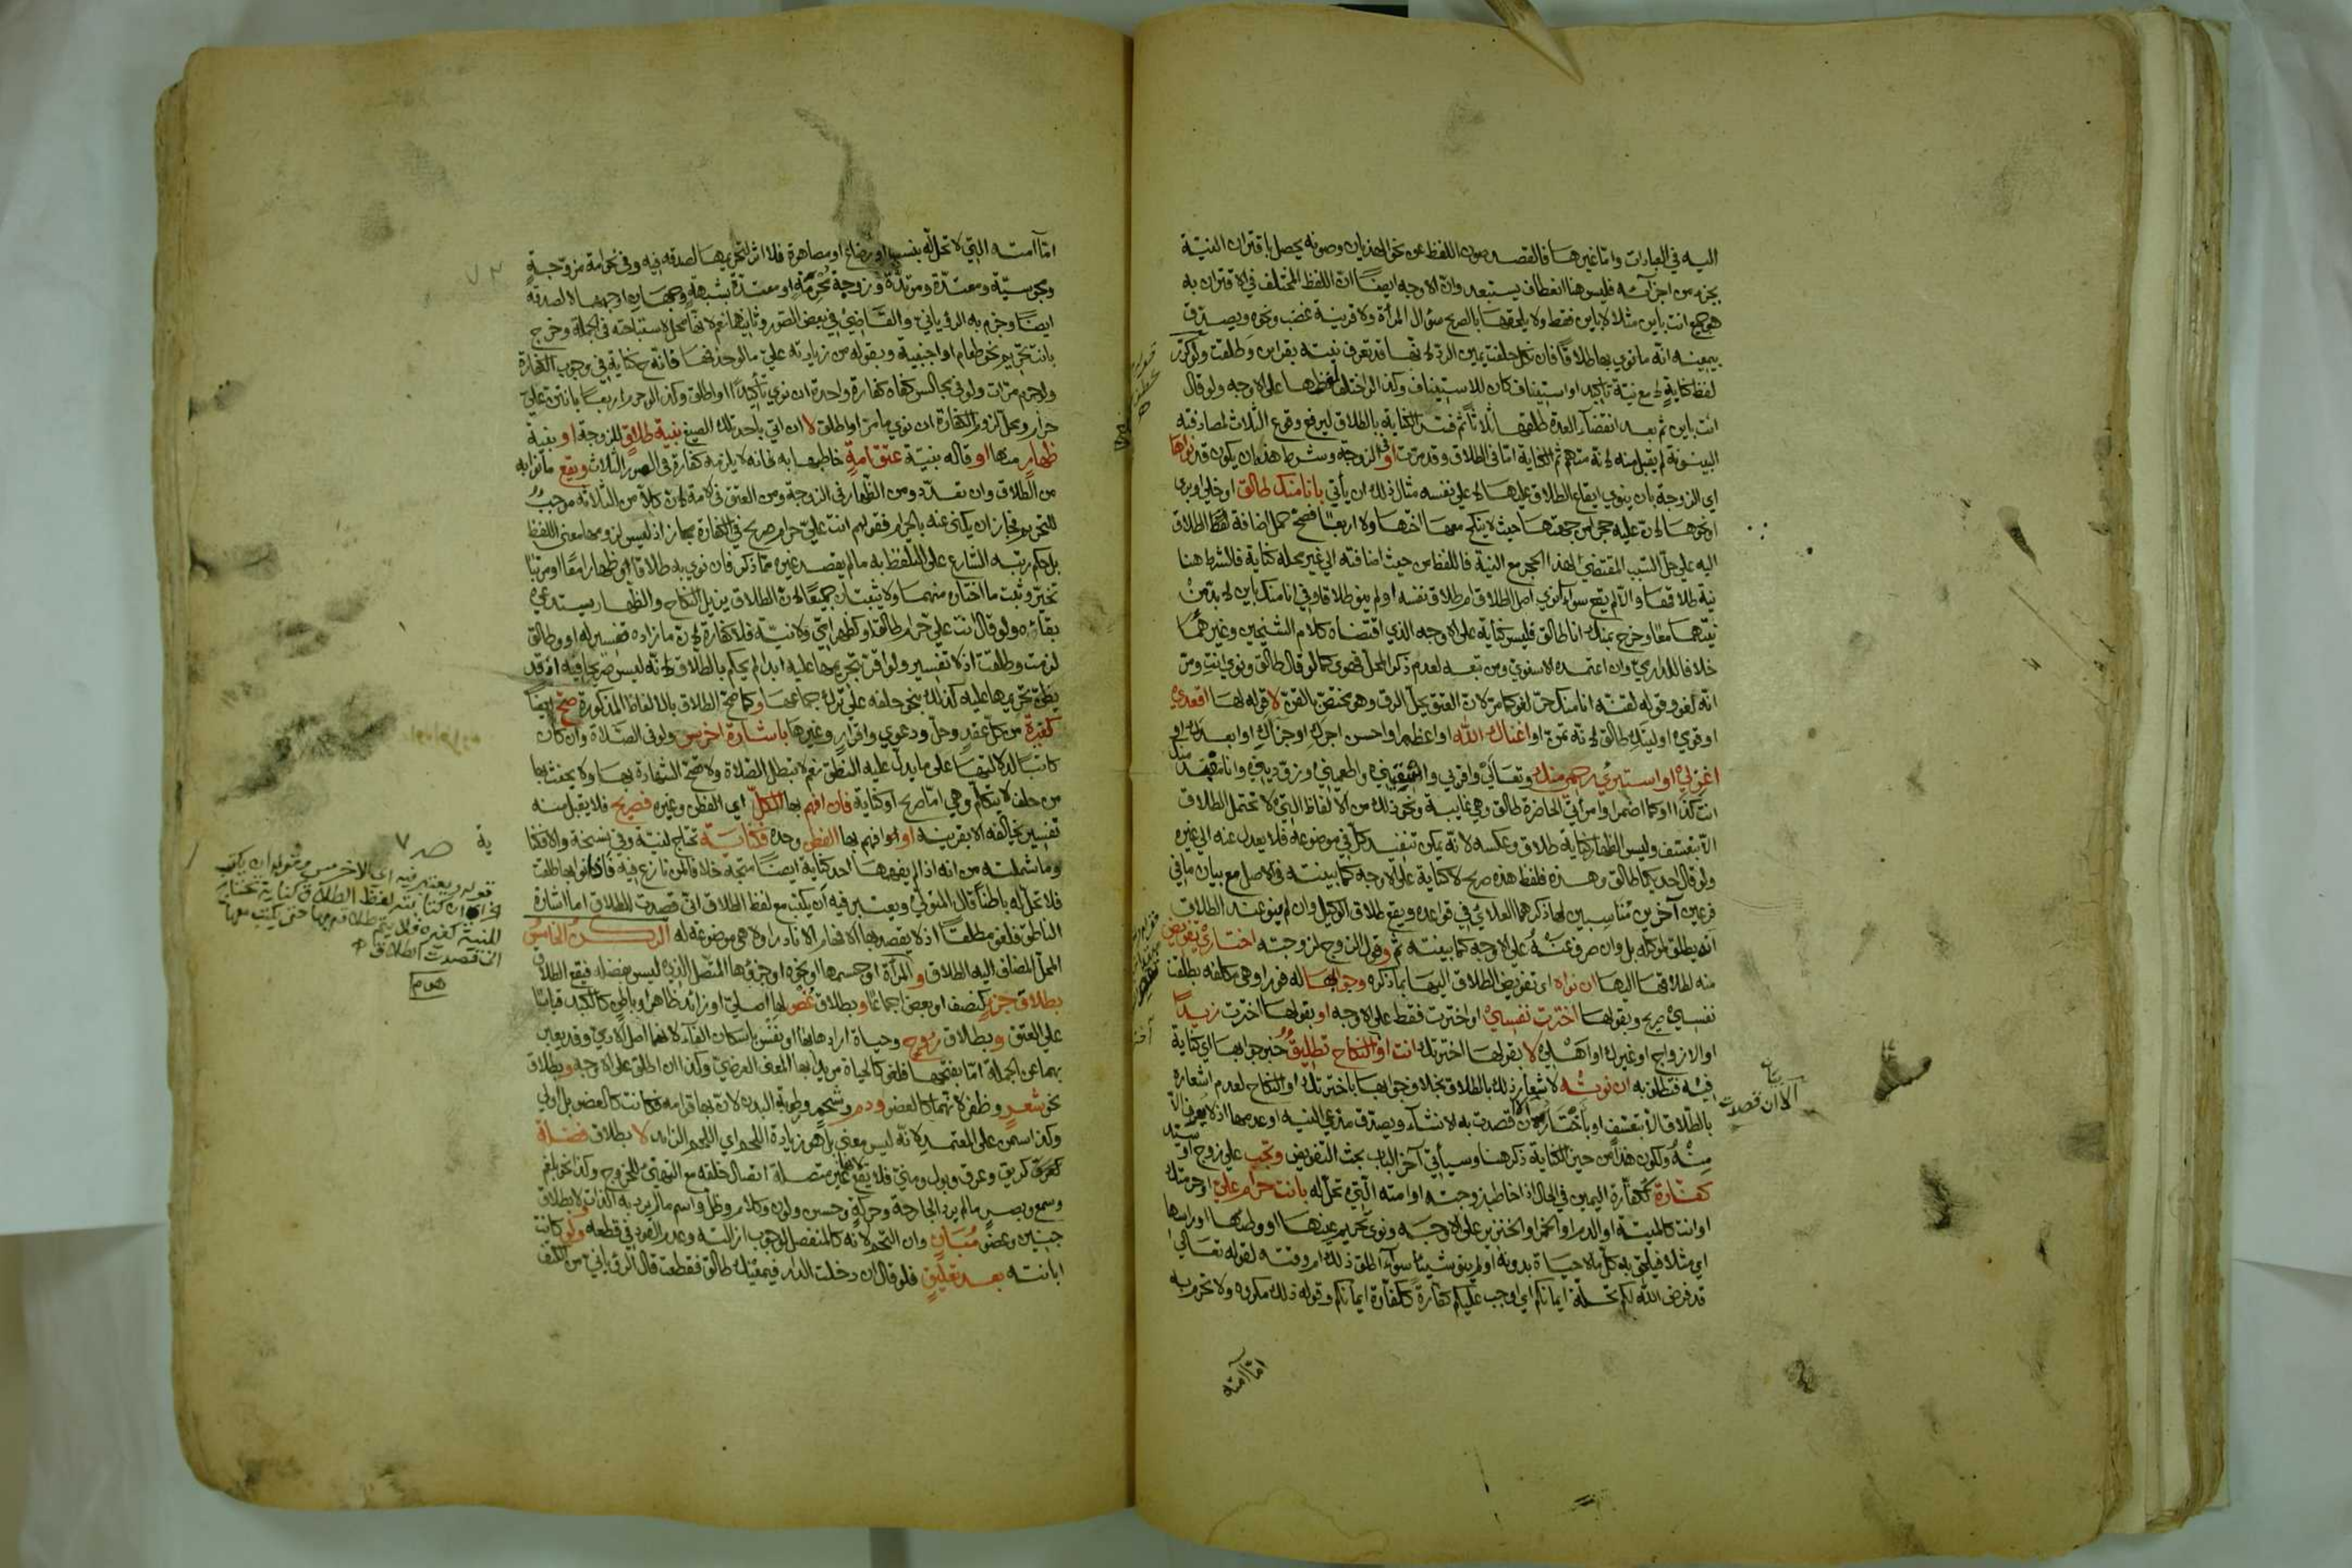 اليه في العبارات وامّا غيرها فالقصد صون اللفظ عن نحو الهذيان وصونه يحصل باقتران النيّة
بجزء من اجزآئه فليس هنا انعطاف يستبعد وانّ الاوجه ايضًا انّ اللفظ المختلف في الاقتران به
هو جميع انت باين مثلا لا باين فقط ولا يلحقها بالصريح سؤال المرأة ولا قرينة غضب ونحوه ويصدق
بيمينه انّه ما نوي بها طلاقًا فان نكل حلفت يمين الردّ لانّها قد تعرف نيته بقراين وطلقت ولو كرّر
لفظ كناية لا مع نيّة تاكيد او استيناف كان للاستيناف وكذا لو اختلف لفظها على الاوجه ولو قال
انت باين ثم بعد انقضآء العدة طلقها ثلاثًا ثم فسّر الكناية بالطلاق ليرفع وقوع الثلاث لمصادفته
البينونة لم يقبل منه لانّه متهم ثم الكناية امّا في الطلاق وقد مرّت او في الزوجة وشرط هذه ان يكون قد نواها
اي الزوجة بان ينوي ايقاع الطلاق عليها لا على نفسه مثال ذلك ان يأتي بانا منك طالق او خلي او بري
او نحوها لانّ عليه حجرا من جهتها حيث لا ينكح معها اختها ولا اربعًا فصحّ حمل اضافة لفظ الطلاق
اليه على حلّ السّبب المقتضي لهذا الحجر مع النية فاللفظ من حيث اضافته الي غير محله كناية فالشرط هنا
نية طلاقها والّا لم يقع سوآء انوي اصل الطلاق ام طلاق نفسه او لم ينو طلاقا وفي انا منك باين لا بدّ من
نيّتهما معًا وخرج بمنك انا طالق فليس كناية على الاوجه الذي اقتضاه كلام الشيخين وغيرهما
خلافا للدارمي وان اعتمده الاسنوي ومن تبعه لعدم ذكر المحل فهو كما لو قال طالق ونوي انت ومرّ
انّه لغو وقوله لقنّه انا منك حرّ لغو كما مرّ لانّ العتق يحلّ الرق وهو مختصّ بالقنّ لا قوله لها اقعدي
او قومي او ليتك طالق لانّه تمنّ او اغناك الله او اعظم او احسن اجرك او جزاك او ابعدك او
اغزلي او استبري رحمك منك وتعالي واقربي واسقيني واطعميني وزوّديني وانا
انت كذا او كما اضمر او امرأتي الحاضرة طالق وهي غايبة ونحو ذلك من الالفاظ التي لا تحتمل الطلاق
الّا بتعسّف وليس الظهار كناية طلاق وعكسه لانّه يمكن تنفيذ كلّ في موضوعه فلا يعدل عنه الي غيره
ولو قال احديكما طالق وهذه فلفظ هذه صريح لا كناية على الاوجه كما بينته في الاصل مع بيان ما في
فرعين آخرين مناسبين لها ذكرهما العلائي في قواعده ويقع طلاق الوكيل وان لم ينو عند الطلاق
انّه يطلق لموكله بل وان صرف عنه على الاوجه كما بينته ثم وقول الزوج لزوجته اختاري تفويض
منه لطلاقها اليها ان نواه اي تفويض الطلاق اليها بما ذكره وجوابها له فورا وهي مكلفة بطلقت
نفسي صريح وبقولها اخترت نفسي او اخترت فقط على الاوجه او بقولها اخترت زيدًا
او الازواج او غيرك او اهلي لا بقولها اخترتك انت او النكاح تطليق خبر جوابها اي كناية
فيه فتطلق به ان نوته لاشعار ذلك بالطلاق بخلاف جوابها باخترتك او النكاح لعدم اشعاره
بالطلاق الّا بتعسّف او باختار الا ان قصدت به الانشآء ويصدّق مدّعي النية او عدمها اذ لا يعرف الّا
منه ولكون هذا من حيّز الكناية ذكر هنا وسيأتي آخر الباب بحث التفويض وتجب على زوج او سيّد
كفارة ككفارة اليمين في الحال اذا خاطب زوجته او امته الّتي تحلّ له بانت حرام عليّ او حرّمتك
او انت كالميتة او الدم او الخمر او الخنزير على الاوجه ونوي تحريم عينها او وطئها او راسها
اي مثلا فيلحق به كلّ ما لا حياة بدونه او لم ينو شيئًا سوآء اطلق ذلك ام وقته لقوله تعالي
قد فرض الله لكم تحلّة ايمانكم اي اوجب عليكم كفّارة ككفّارة ايمانكم وقوله ذلك مكروه ولا تحرم به
امّا امته
الا ان قصدت
امّا امته التي لا تحلّ له بنسب او رضاع او مصاهرة فلا اثر لتحريمها لصدقه فيه وفي نحو امة مزوّجة
ومجوسيّة ومعتدّة ومرتدّة وزوجة محرمة او معتدّة بشبهة وجهان اوجههما لا لصدقه
ايضًا وجزم به الروياني والقاضي في بعض الصور وثانيهما نعم لانّها محل لاستباحته في الجملة وخرج
بانت تحريم نحو طعام او اجنبية وبقوله من زيادته عليّ ما لو حذفها فانّه كناية في وجوب الكفارة
ولو حرّم مرّات ولو في مجالس كفاه كفارة واحدة ان نوي تأكيدًا او اطلق وكذا لو حرّم اربعًا بانتنّ عليّ
حرام ومحلّ لزوم الكفارة ان نوي ما مرّ او اطلق لا ان اتي باحد تلك الصيغ بنية طلاق للزوجة او بنية
ظهار منها او قاله بنيّة عتق امة خاطبها به فانه لا يلزمه كفارة في الصور الثلاث ويقع ما نواه به
من الطلاق وان تعدّد ومن الظهار في الزوجة ومن العتق في الامة لانّ كلا من الثلاثة موجب
للتحريم فجاز ان يكني عنه بالحرام فقولهم انت عليّ حرام صريح في الكفارة مجاز اذ ليس لزومها معنى اللفظ
بل حكم رتّبه الشارع على التلفظ به ما لم يقصد غيره ممّا ذكر فان نوي به طلاقا اي وظهارا معًا او مرتبًا
تخيّر وثبت ما اختاره منهما ولا يثبتان جميعًا لانّ الطلاق يزيل النكاح والظهار يستدعي
بقآءه ولو قال انت علي حرام طالق او كظهر امّي ولا نيّة فلا كفارة لانّ ما زاده تفسير له او وطالق
لزمت وطلقت اذ لا تفسير ولو اقرّ بتحريمها عليه ابدا لم يحكم بالطلاق لانّه ليس صريحا فيه اذ قد
يظنّ تحريمها عليه كذلك بنحو حلفه على ترك جماعها وكما صحّ الطلاق بالالفاظ المذكورة صحّ ايضًا
كغيره من كلّ عقد وحلّ ودعوي واقرار وغيرها باشارة اخرس ولو في الصّلاة وان كان
كاتبا لدلالتها على ما يدلّ عليه النطق نعم لا تبطل الصّلاة ولا تصحّ الشهادة بها ولا يحنث بها
من حلف لا يتكلّم وهي امّا صريح او كناية فان افهم بها الكلّ اي الفطن وغيره فصريح فلا يقبل منه
تفسير يخالفه الا بقرينة او افهم بها الفطن وحده فكناية تحتاج لنيّة وفي نسخة والا فكنا
ية
وما شملته من انه اذا لم يفهمها احد كناية ايضًا متجه خلافا لمن نازع فيه فاذا نوى بها طلقت
فلا تحلّ له باطنًا قال المتولي ويعتبر فيه ان يكتب مع لفظ الطلاق اني قصدت الطلاق امّا اشارة
الناطق فلغو مطلقًا اذ لا يقصد بها الافهام الا نادرا ولا هي موضوعه له الركن الخامس
المحلّ المضاف اليه الطلاق و المرأة او جسمها او نحوه او جزؤها المتّصل الذي ليس بفضلة فيقع الطلاق
بطلاق جزء كنصف او بعض اجماعًا وبطلاق عضو لها اصليّ او زائد ظاهر او باطن كالكبد قياسًا
على العتق وبطلاق روح وحياة اراد هابها او نفس باسكان الفآء لانها اصل الآدمي وقد يعبر
بهما عن الجملة امّا بفتحها فلغو كالحياة مريدًا بها المعنى العرضي وكذا ان اطلق على الاوجه وبطلاق
نحو شعر وظفر لا تهما كالعضو ودم وشحم ورطوبة البدن لانّ بها قوامه فكانت كالعضو بل اولي
وكذا سمن على المعتمد لانّه ليس معني بل هو زيادة اللحم اي اللحم الزايد لا بطلاق فضلة
كريق وعرق وبول ومنيّ فلا يقع لانها غير متصلة اتصال خلقه مع التهيّئ للخروج وكذا نحو بلغم
وسمع وبصر ما لم يرد الجارحة وحركة وحسن ولون وكلام وظلّ واسم ما لم يرد به الذات ولا بطلاق
جنين وعضو مبان وان التحم لانه كالمنفصل لوجوب ازالته وعدم القود في قطعه ولو كانت
ابانته بعد تعليق فلو قال ان دخلت الدار فيمينك طالق فقطعت قال الرافعي
صـ ٧
قوله ويعتبر فيه اى الاخرس
المنية كغيره فلا يقع طلاقهم بها حتى يكتب معها
انى قصدت الطلاق